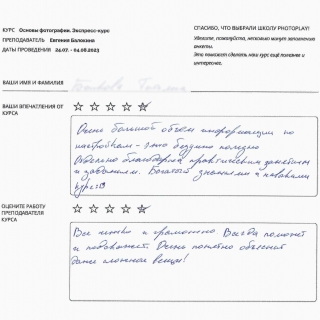 КУРС Основы фотографии. Экспресс-курс
ПРЕПОДАВАТЕЛЬ Евгения Балохина
ДАТЫ ПРОВЕДЕНИЯ 24.07. - 04.08.2023
СПАСИБО, ЧТО ВЫБРАЛИ ШКОЛУ PHOTOPLAY!
Уделите, пожалуйста, несколько минут заполнению анкеты.
Это поможет сделать наш курс ещё полнее и интереснее.
ВАШИ ИМЯ И ФАМИЛИЯ
ВАШИ ВПЕЧАТЛЕНИЯ ОТ КУРСА
Очень большой объем информации по
настройкам - это безумно полезно
Отдельно благодарна практическим занятиям
и заданиям. Богатый знаниями и навыками
курс
ОЦЕНИТЕ РАБОТУ ПРЕПОДАВАТЕЛЯ КУРСА
Все четко и грамотно Всегда поможет
и подскажет. Очень понятно объясняет
даже сложные вещи!